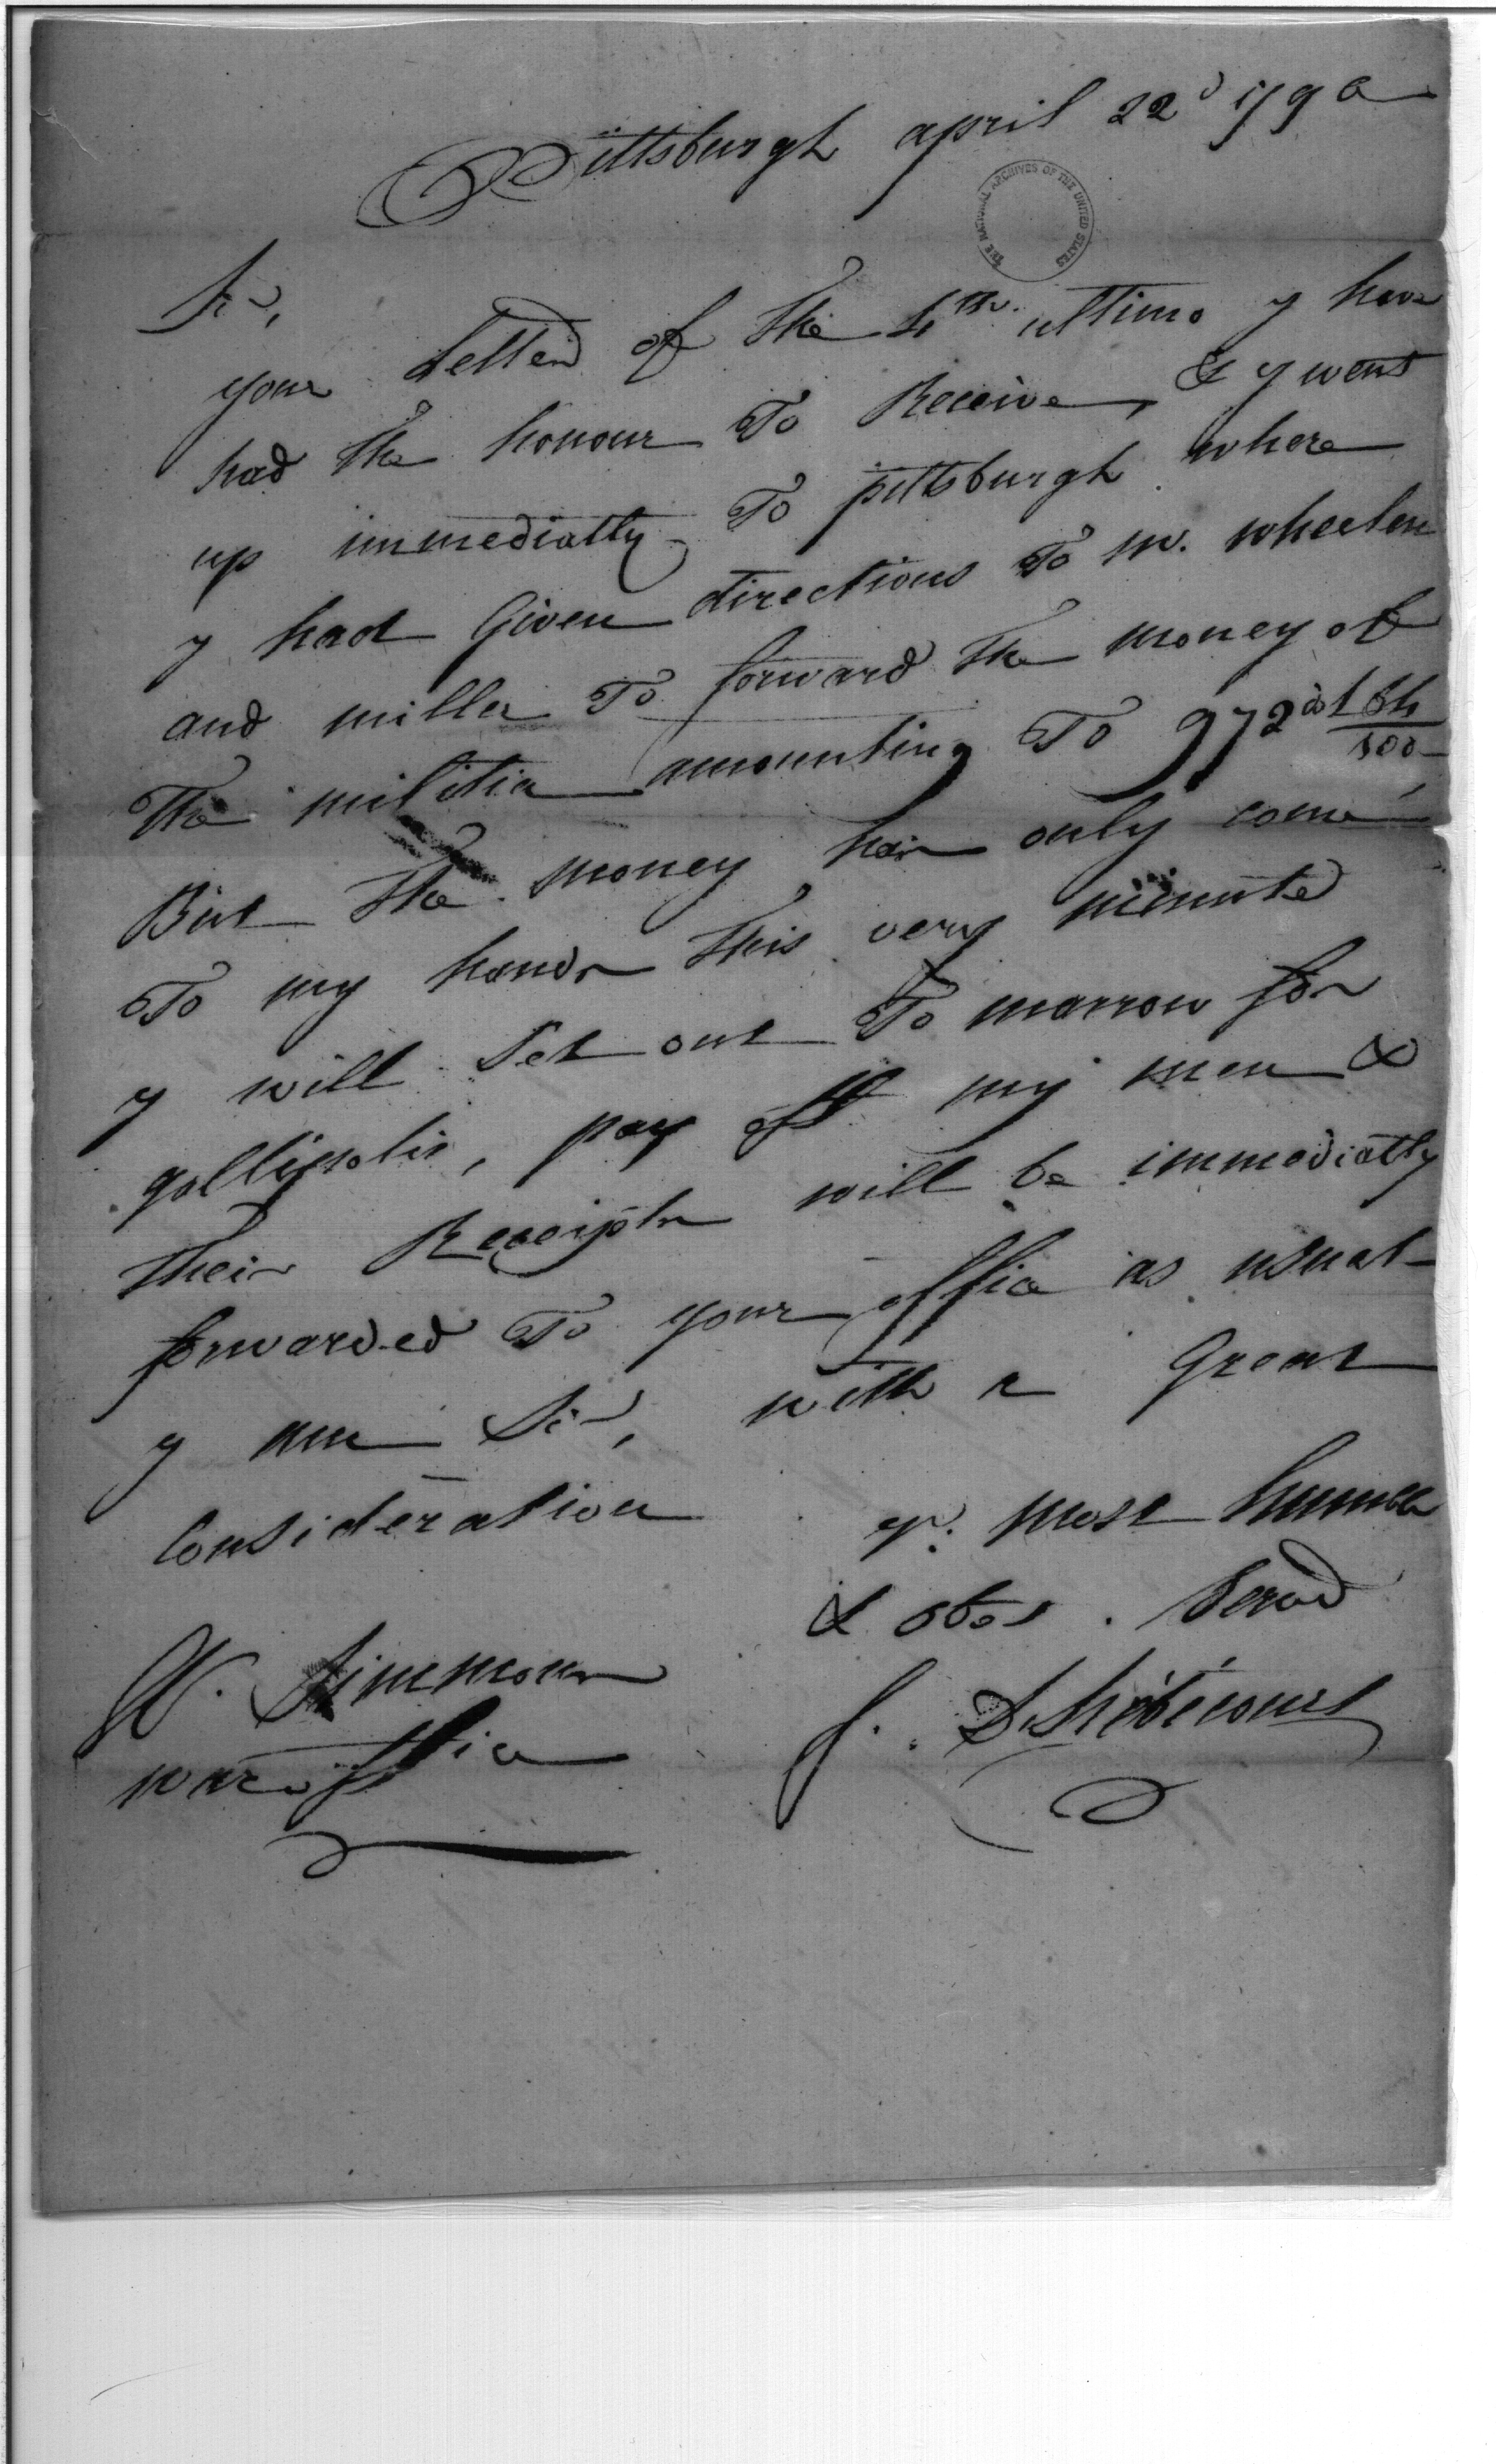 Pittsburgh april 22d 1796
THE NATIONAL ARCHIVES OF THE UNITED STATES
Sir,
your letter of the 4th. ultimo y have
had the honour To Receive, & y went
up immediatly To pittsburgh where
y had Given directions To mr. wheelen
and miller To forward the money of
The militia amounting To 972 dol
100
But the money has only come
To my hands this very minute
y will set out To morrow for
gallipolis, pay off my men &
their Receipts will be immediatly
forwarded To your office as usual
y am Sir, with a Great
Consideration yr. most humble
& obet . servd
W. Simmons J. D'hébécourt
war office